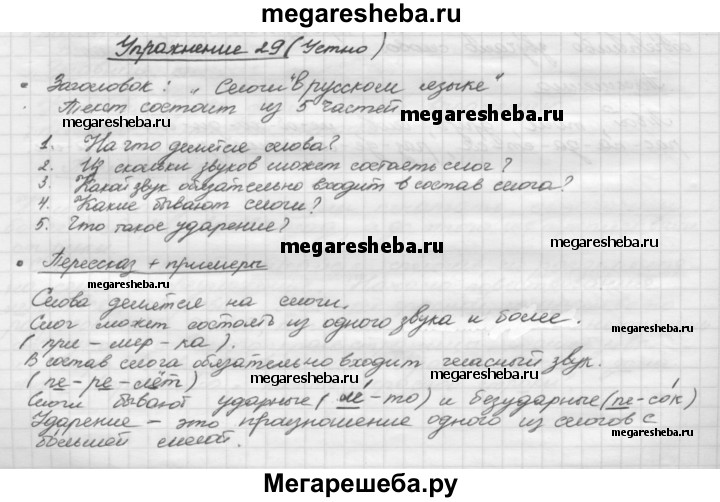 megaresheba.ru
Упражнение 29 (Устно)
• Заголовок: „Слоги в русском языке"
. Текст состоит из 5 частей
megaresheba.ru
megaresheba.ru
1. На что делятся слова?
2. Из скольки звуков может состоять слог?
3. Какой звук обязательно входит в состав слога?
4. Какие бывают слоги?
5. Что такое ударение?
megaresheba.ru
• Пересказ + примеры
megaresheba.ru
Слова делятся на слоги.
Слог может состоять из одного звука и более.
(при-мер-ка).
megaresheba.ru
В состав слога обязательно входит гласный звук.
(пе-ре-лёт)
megaresheba.ru
Слоги бывают ударные (ле́-то) и безударные (пе-со́к)
Ударение – это произношение одного из слогов с
большей силой.
megaresheba.ru
Мегарешеба.ру